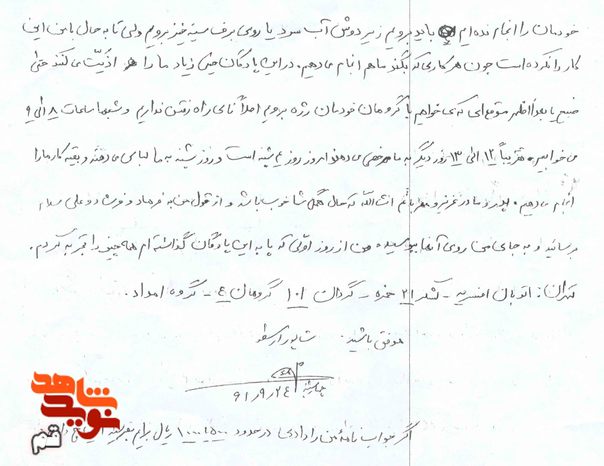 خودمان را انجام نداده ایم باید برویم زیر دوش آب سرد یا روی برف سینه خیز برویم ولی تا به حال با من این
کار را نکرده است چون هر کاری که بگند ما هم انجام می دهیم. در این پادگان خیلی زیاد ما را اذیّت می کنند حتی
صبح یا بعدازظهر موقع ای که می خواهیم با گروهان خودمان رژه برویم اصلاً نای راه رفتن نداریم و شبها ساعات ۸ الی ۹
می خوابیم. تقریباً ۱۲ الی ۱۳ روز دیگر به ما مرخصی می دهند امروز روز شنبه است و روز شنبه به ما لباس می دهند و بقیه کارها را
انجام می دهیم. پدر و مادر عزیز و مهربانم انشاالله که حال همگی شما خوب باشد و از قول من به فرهاد و فرشاد و علی سلام
برسانید و به جای من روی آنها ببوسید. من از روز اولی که پا به این پادگان گذاشته ام همه چیز را تجربه کردم.
تهران: اتوبان افسریه - لشکر ۲۱ حمزه - گردان ۱۰۱ گروهان ٤ - گروه امداد.
موفق باشید.
۹۱/۹/۲٤
اگر جواب نامهٔ من را دادی در حدود ریال برایم بفرست
شاهد
نوید
قم